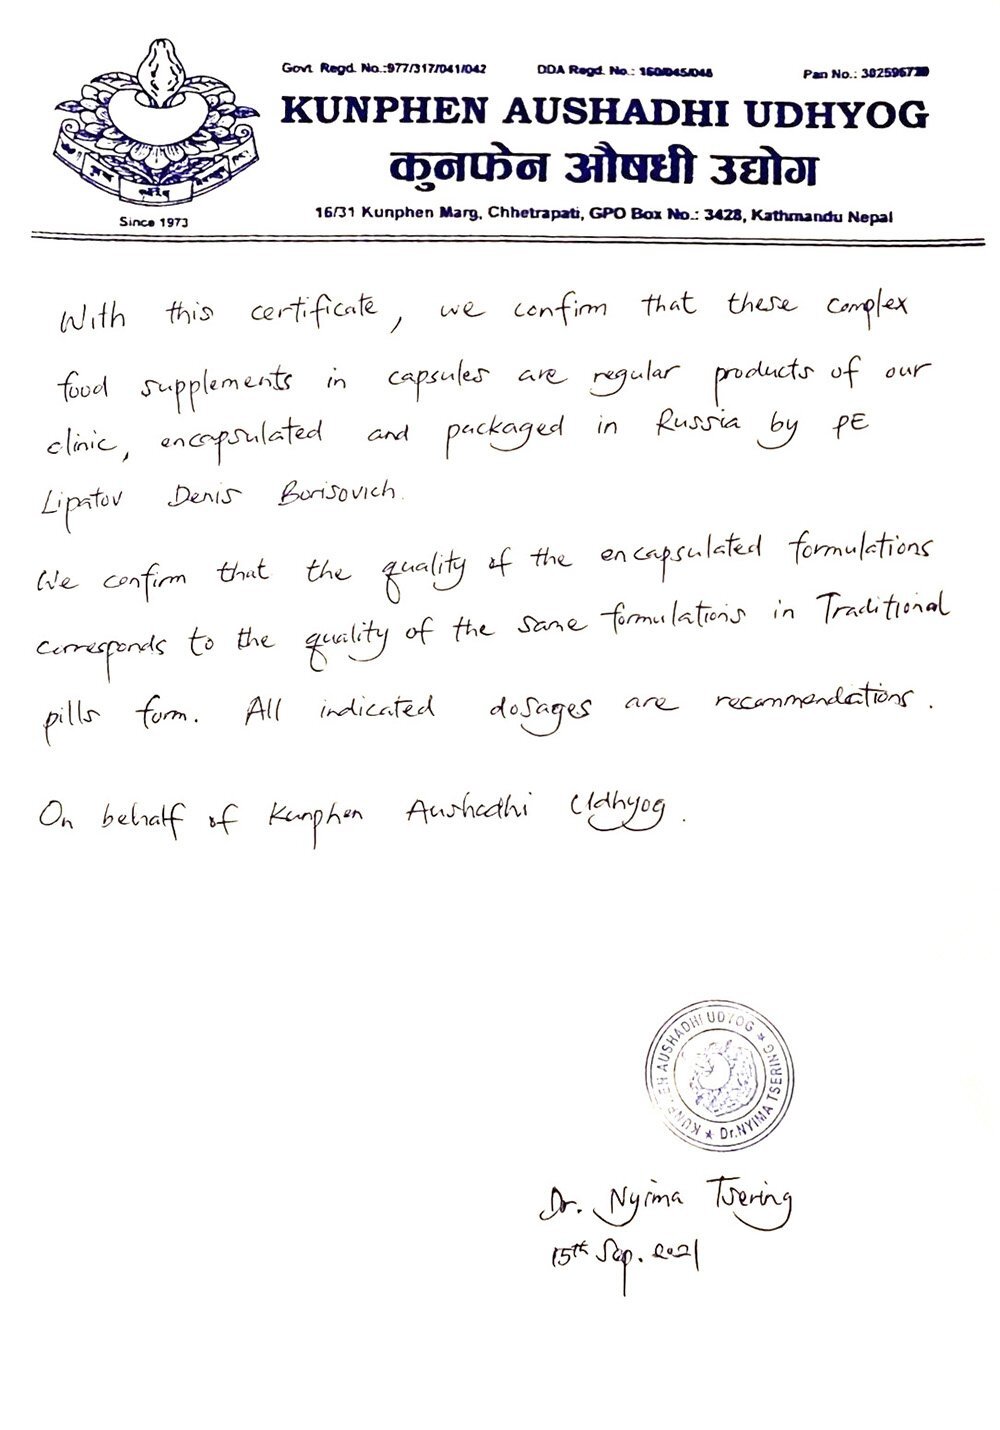 Govt. Regd. No.:977/317/041/042 DDA Regd. No.: 160/045/046 Pan No.:
KUNPHEN AUSHADHI UDHYOG
कुनफेन औषधी उद्योग
16/31 Kunphen Marg, Chhetrapati, GPO Box No.: 3428, Kathmandu Nepal
Since 1973
With this certificate, we confirm that these complex
food supplements in capsules are regular products of our
clinic, encapsulated and packaged in Russia by PE
Lipatov Denis Borisovich.
We confirm that the quality of the encapsulated formulations
corresponds to the quality of the same formulations in Traditional
pills form. All indicated dosages are recommendations.
On behalf of Kunphen Aushadhi Udhyog.
KUNPHEN AUSHADHI UDYOG ★ Dr.NYIMA TSERING ★
Dr. Nyima Tsering
15th Sep. 2021